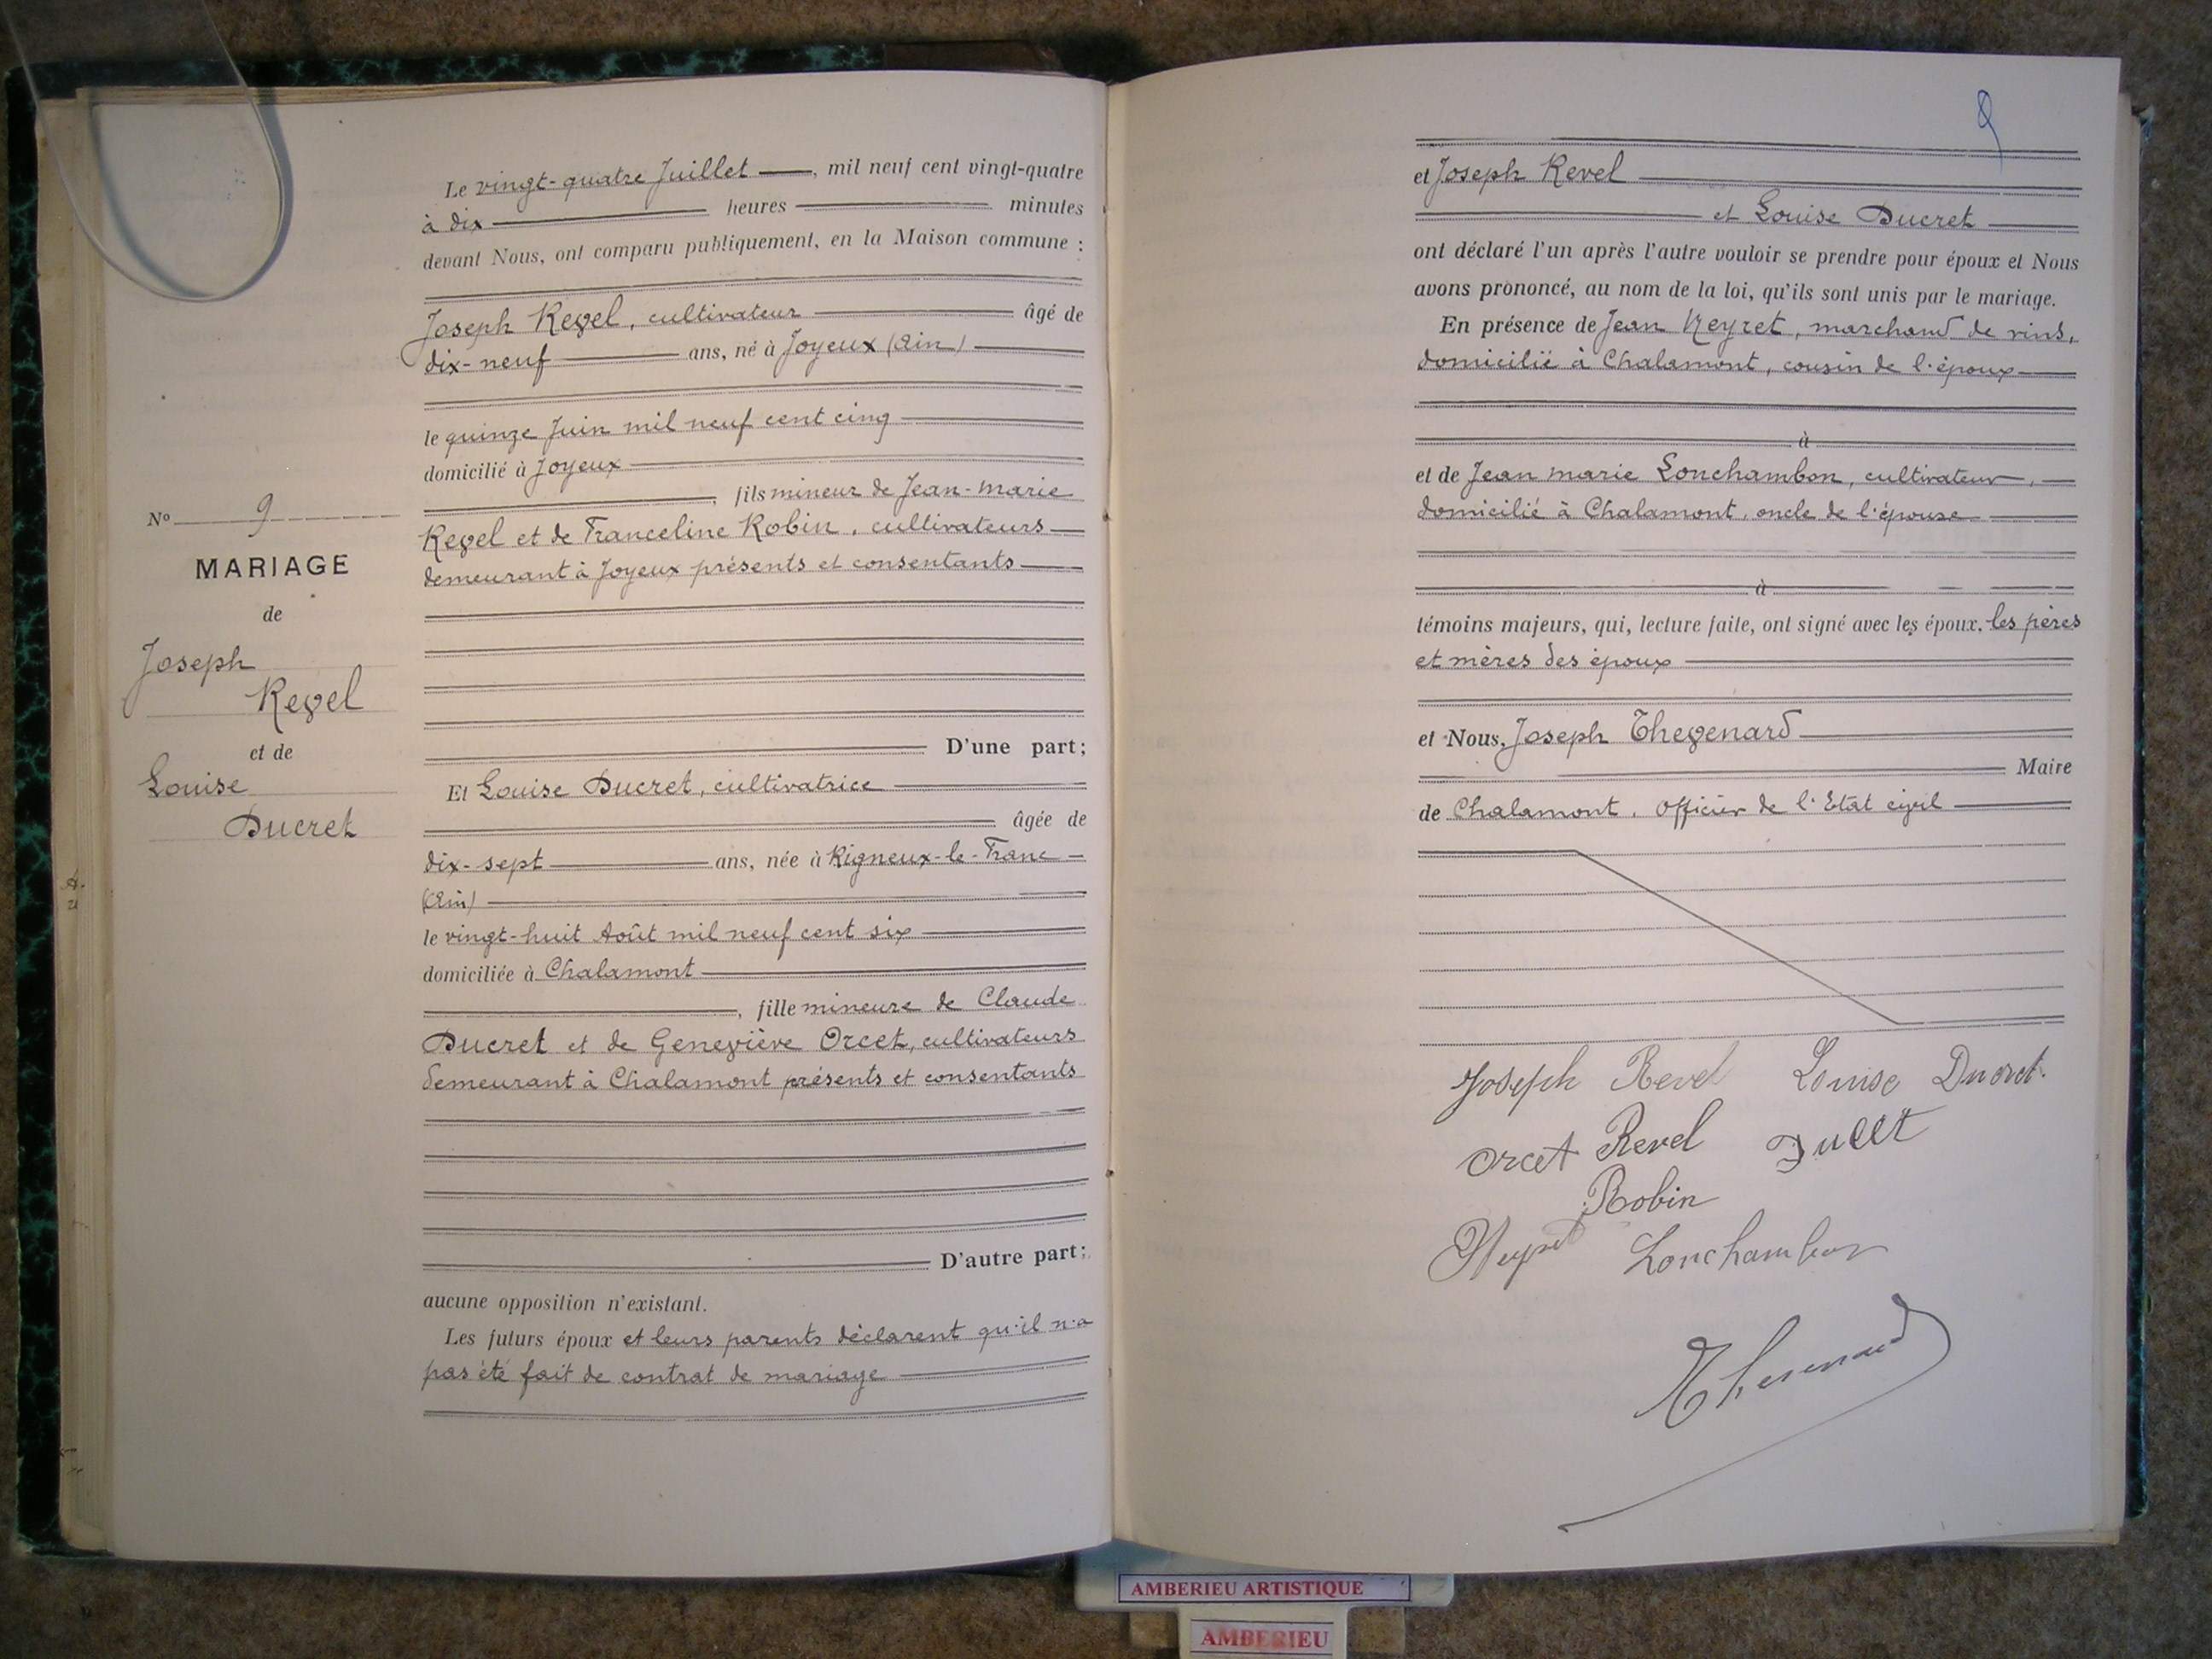 Le vingt-quatre Juillet, mil neuf cent vingt-quatre
à dix heures minutes
devant Nous, ont comparu publiquement, en la Maison commune :
Joseph Revel, cultivateur âgé de
dix-neuf ans, né à Joyeux (Ain)
le quinze Juin mil neuf cent cinq
domicilié à Joyeux
, fils mineur de Jean-Marie
Revel et de Franceline Robin, cultivateurs
demeurant à Joyeux présents et consentants
D'une part;
Et Louise Ducret, cultivatrice
âgée de
dix-sept ans, née à Rigneux-le-Franc
(Ain)
le vingt-huit Août mil neuf cent six
domiciliée à Chalamont
, fille mineure de Claude
Ducret et de Geneviève Orcet, cultivateurs
demeurant à Chalamont présents et consentants
D'autre part;
aucune opposition n'existant.
Les futurs époux et leurs parents déclarent qu'il n'a
pas été fait de contrat de mariage
No 9
MARIAGE
de
Joseph
Revel
et de
Louise
Ducret
9
et Joseph Revel
et Louise Ducret
ont déclaré l'un après l'autre vouloir se prendre pour époux et Nous
avons prononcé, au nom de la loi, qu'ils sont unis par le mariage.
En présence de Jean Neyret, marchand de vins,
domicilié à Chalamont, cousin de l'époux
à
et de Jean marie Lonchambon, cultivateur,
domicilié à Chalamont, oncle de l'épouse
à
témoins majeurs, qui, lecture faite, ont signé avec les époux, les pères
et mères des époux
et Nous, Joseph Thevenard
Maire
de Chalamont, Officier de l'Etat civil
Joseph Revel Louise Ducret.
Orcet Revel
Robin
Neyret Lonchambon
Thevenard
AMBERIEU ARTISTIQUE
AMBERIEU